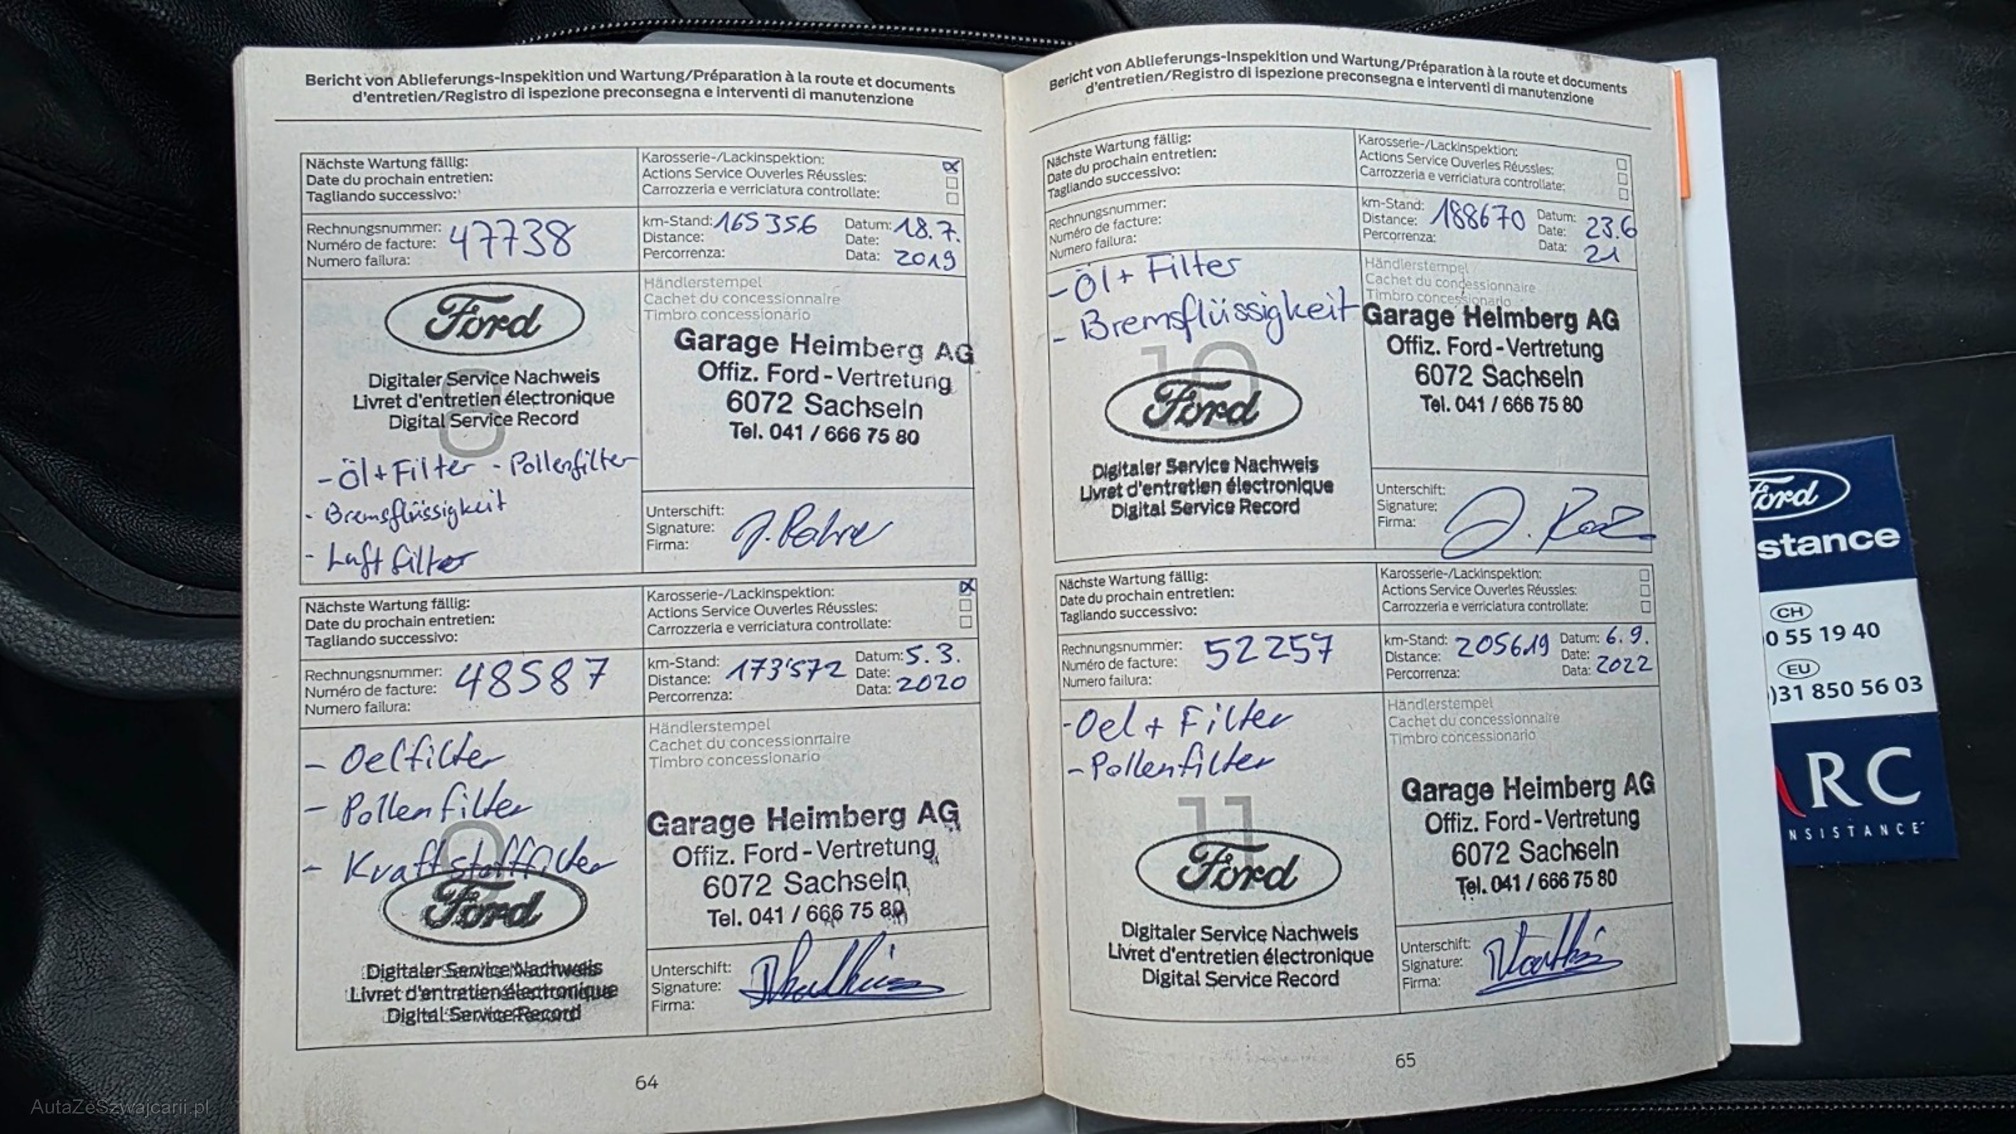 Bericht von Ablieferungs-Inspekition und Wartung/Préparation à la route et documents
d'entretien/Registro di ispezione preconsegna e interventi di manutenzione
Nächste Wartung fällig:
Date du prochain entretien:
Tagliando successivo:
Karosserie-/Lackinspektion:
Actions Service Ouverles Réussles:
Carrozzeria e verriciatura controllate:
Rechnungsnummer: 47738
Numéro de facture:
Numero failura:
km-Stand: 165356 Datum: 18.7.
Distance: Date:
Percorrenza: Data: 2019
Ford
Digitaler Service Nachweis
Livret d'entretien électronique
Digital Service Record
8
- Öl + Filter - Pollenfilter
- Bremsflüssigkeit
- Luftfilter
Händlerstempel
Cachet du concessionnaire
Timbro concessionario
Garage Heimberg AG
Offiz. Ford-Vertretung
6072 Sachseln
Tel. 041 / 666 75 80
Unterschift:
Signature:
Firma:
Nächste Wartung fällig:
Date du prochain entretien:
Tagliando successivo:
Karosserie-/Lackinspektion:
Actions Service Ouverles Réussles:
Carrozzeria e verriciatura controllate:
Rechnungsnummer: 48587
Numéro de facture:
Numero failura:
km-Stand: 173'572 Datum: 5.3.
Distance: Date:
Percorrenza: Data: 2020
- Oelfilter
- Pollenfilter
- Kraftstofffilter
9
Ford
Digitaler Service Nachweis
Livret d'entretien électronique
Digital Service Record
Händlerstempel
Cachet du concessionnaire
Timbro concessionario
Garage Heimberg AG
Offiz. Ford-Vertretung
6072 Sachseln
Tel. 041 / 666 75 80
Unterschift:
Signature:
Firma:
64
Bericht von Ablieferungs-Inspekition und Wartung/Préparation à la route et documents
d'entretien/Registro di ispezione preconsegna e interventi di manutenzione
Nächste Wartung fällig:
Date du prochain entretien:
Tagliando successivo:
Karosserie-/Lackinspektion:
Actions Service Ouverles Réussles:
Carrozzeria e verriciatura controllate:
Rechnungsnummer:
Numéro de facture:
Numero failura:
km-Stand: 188670 Datum: 23.6
Distance: Date:
Percorrenza: Data: 21
- Öl + Filter
- Bremsflüssigkeit
10
Ford
Digitaler Service Nachweis
Livret d'entretien électronique
Digital Service Record
Händlerstempel
Cachet du concessionnaire
Timbro concessionario
Garage Heimberg AG
Offiz. Ford-Vertretung
6072 Sachseln
Tel. 041 / 666 75 80
Unterschift:
Signature:
Firma:
Nächste Wartung fällig:
Date du prochain entretien:
Tagliando successivo:
Karosserie-/Lackinspektion:
Actions Service Ouverles Réussles:
Carrozzeria e verriciatura controllate:
Rechnungsnummer: 52257
Numéro de facture:
Numero failura:
km-Stand: 205619 Datum: 6.9.
Distance: Date:
Percorrenza: Data: 2022
- Oel + Filter
- Pollenfilter
11
Ford
Digitaler Service Nachweis
Livret d'entretien électronique
Digital Service Record
Händlerstempel
Cachet du concessionnaire
Timbro concessionario
Garage Heimberg AG
Offiz. Ford-Vertretung
6072 Sachseln
Tel. 041 / 666 75 80
Unterschift:
Signature:
Firma:
65
Ford
stance
CH
0 55 19 40
EU
)31 850 56 03
ARC
NSISTANCE
AutaZeSzwajcarii.pl